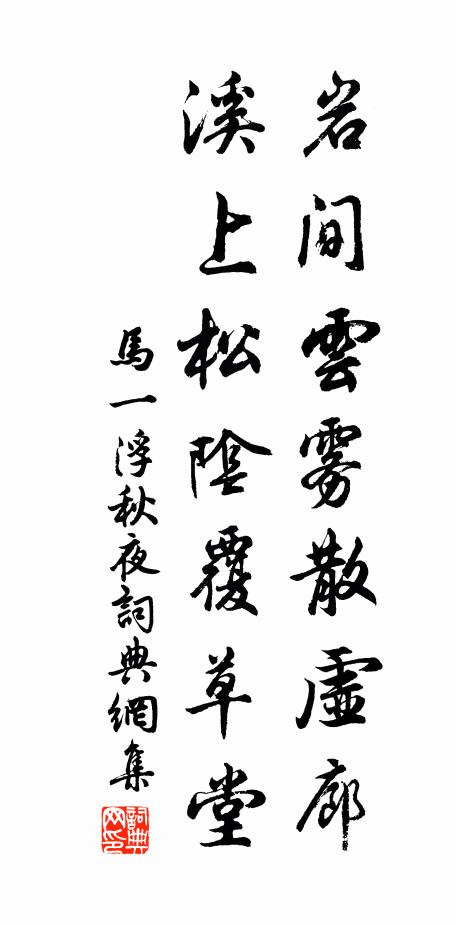 岩間雲雾散虛廊
溪上松陰覆草堂
馬一浮秋夜詞典網集
詞典网印